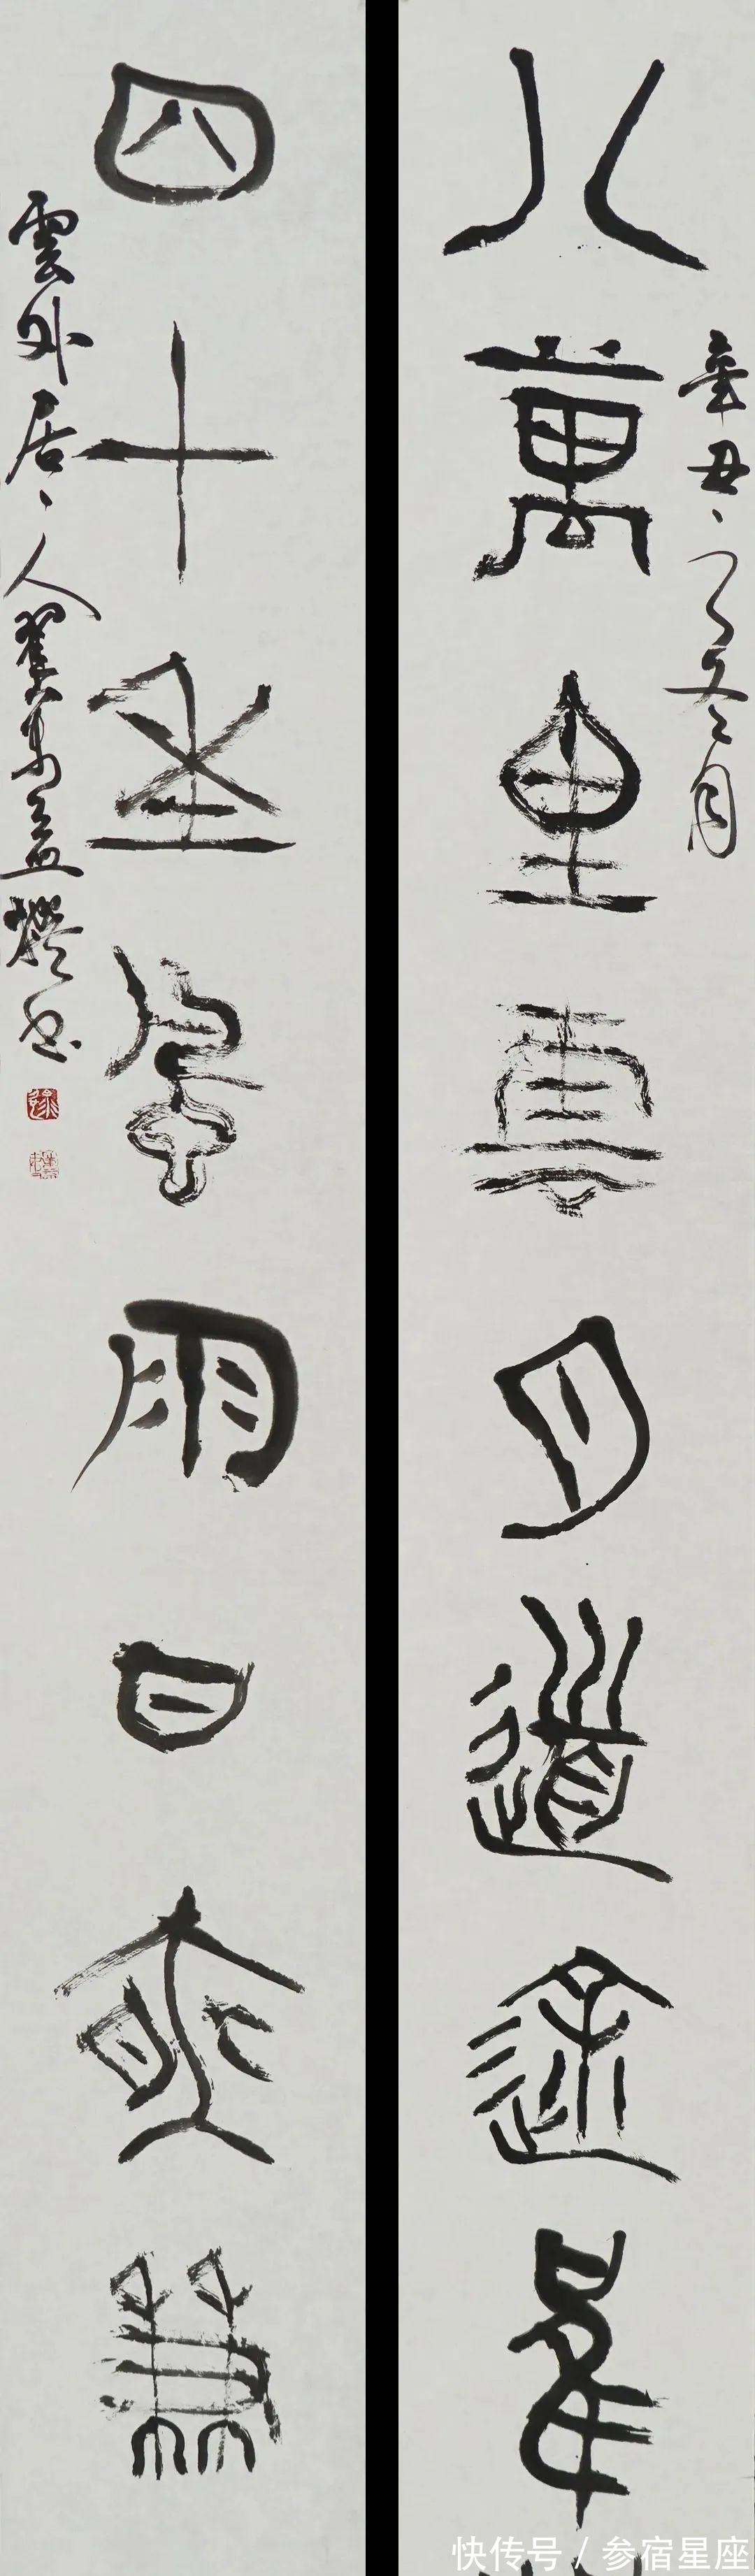 辛丑之冬月
八萬里雲月道途
四十風雨日夜兼
雲外居人翟萬益撰书
快传号 / 参宿星座